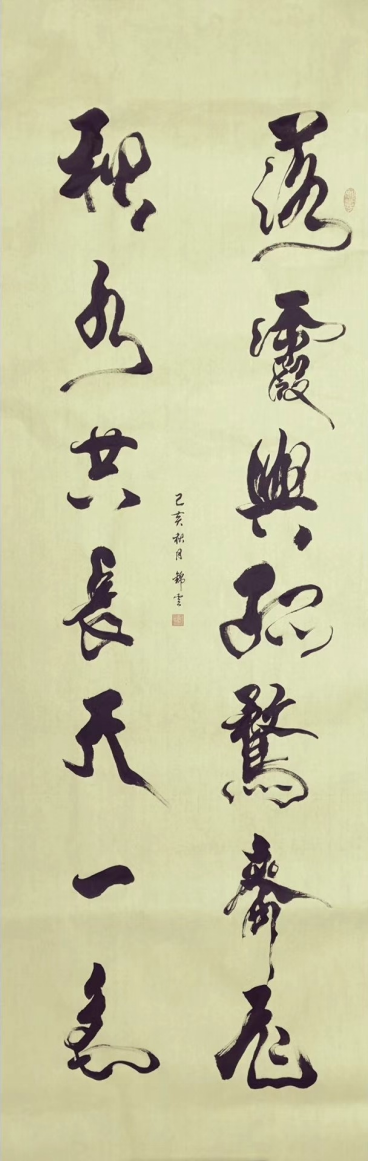 落霞與孤鶩齊飛
秋水共長天一色
己亥秋月 錦雲